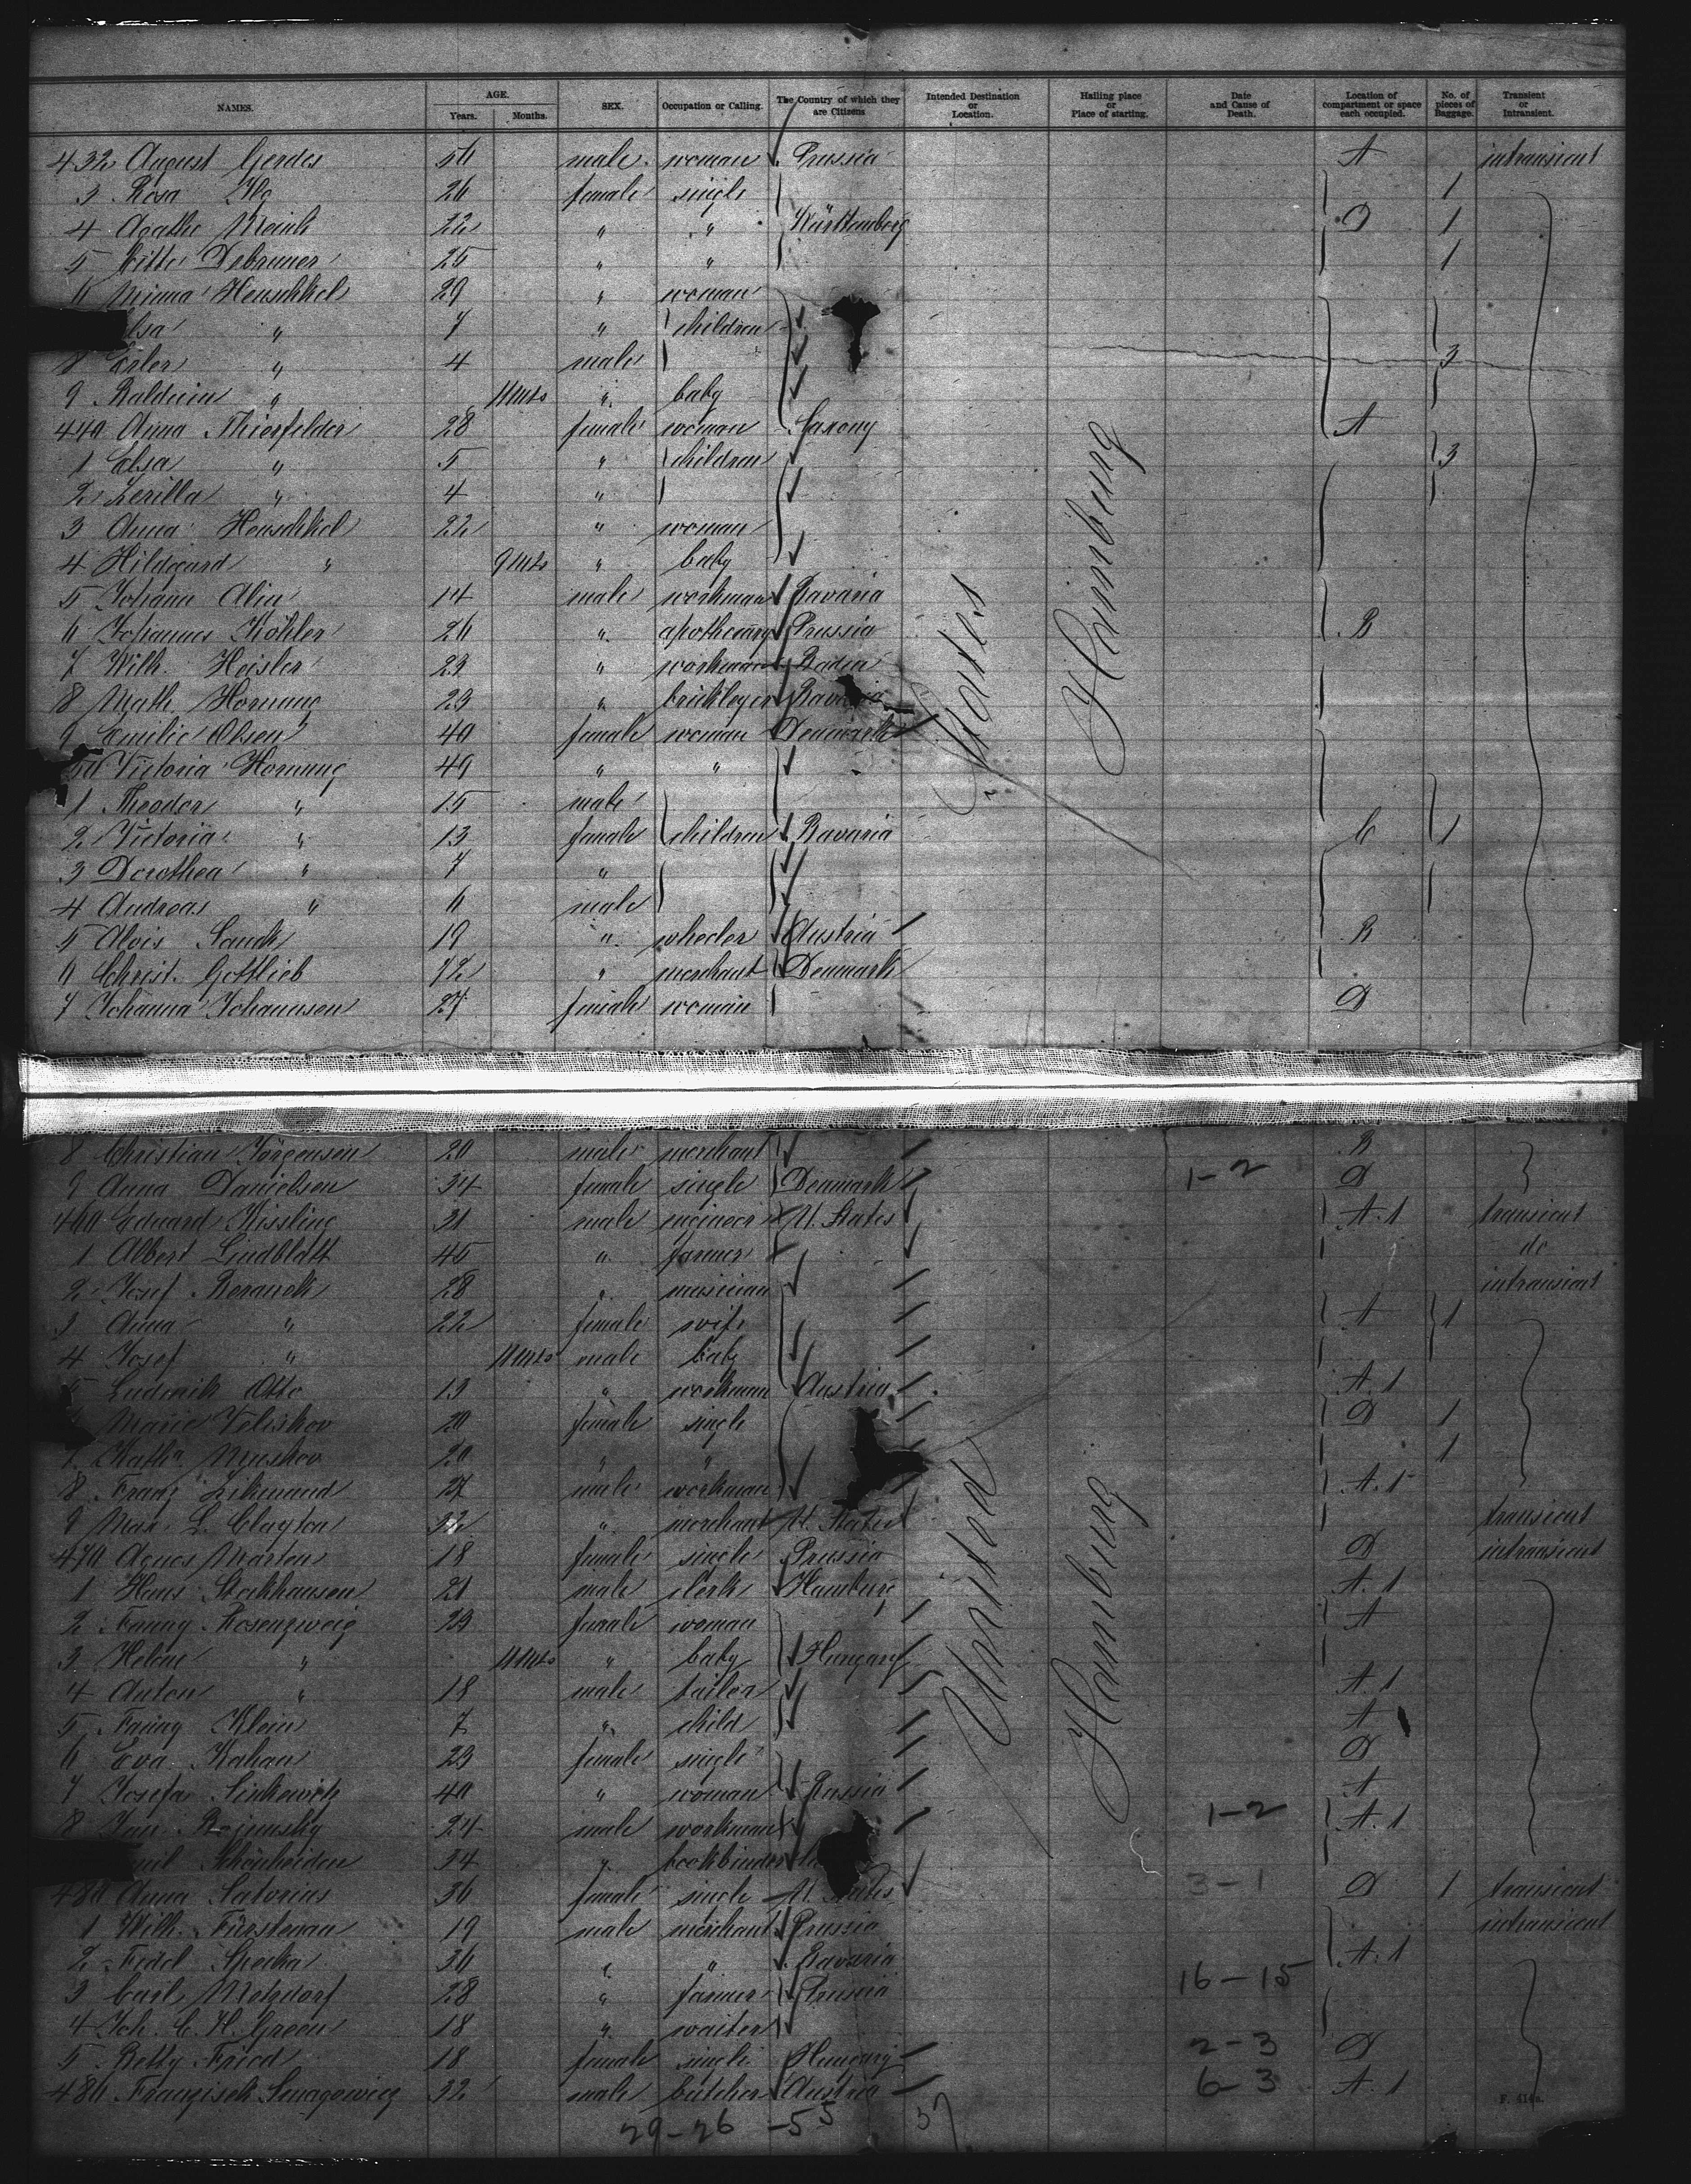 NAMES. AGE. Years. Months. SEX. Occupation or Calling. The Country of which they are Citizens Intended Destination or Location. Hailing place or Place of starting. Date and Cause of Death. Location of compartment or space each occupied. No. of pieces of Baggage. Transient or Intransient.
432 August Gerdes 56 male woman Prussia A intransient
3 Rosa 26 female single 1
4 Agathe 22 " " Württemberg D 1
5 Debruner 25 " " 1
6 Minna Henschkel 29 " woman
Elsa " 7 " children
8 " 4 male 3
9 Balduin " 11 mts " baby
440 Anna Thierfelder 28 female woman Saxony A
1 Elsa " 5 " children 3
2 Zerilla " 4 "
3 Anna Henschkel 22 " woman
4 Hildegard " 9 mts " baby
5 Johann 14 male workman Bavaria
6 Johannes Köhler 26 " apothecary Prussia B
7 Wilh. Heisler 23 " workman Baden
8 Math. Hornung 23 " Bavaria
9 Emilie Olsen 49 female woman Denmark
50 Victoria Hornung 49 " "
1 Theodor " 15 male
2 Victoria " 13 female children Bavaria C 1
3 Dorothea " 7 "
4 Andreas " 6 male
5 Alois 19 " wheeler Austria B
6 Christ. Gottlieb 72 " merchant Denmark
7 Johanna Johannsen 27 female woman D
States Hamburg
8 Christian Jörgensen 20 male merchant B
9 Anna Danielsen 34 female single Denmark 1-2 D
460 Eduard Kissling 31 male engineer U. States A.1 transient
1 Albert 45 " farmer do
2 Josef 28 " musician intransient
3 Anna " 22 female wife A 1
4 Josef " 11 mts male baby
5 Ludwik Otto 13 " workman Austria A.1
Marie 20 female single D 1
7 Kath. 20 " " 1
8 Franz 27 male workman A.1
9 Max L. Clayton 32 " merchant U. States transient
470 Agnes Marten 18 female single Prussia D intransient
1 Hans Stockhausen 21 male clerk Hamburg A.1
2 Fanny Rosenzweig 23 female woman A
3 Helene " 11 mts " baby Hungary
4 Anton " 18 male tailor A.1
5 Fanny Klein 7 " child A
6 Eva Kahan 23 female single D
7 Josefa 40 " woman Russia A
8 Jan 24 male workman 1-2 A.1
Schönheiden 34 " bookbinder
480 Anna Satorius 36 female single U. States 3-1 D 1 transient
1 Wilh. Fürstenau 19 male merchant Prussia intransient
2 Fidel 36 " " Bavaria A.1
3 Carl 28 " farmer Prussia 16-15
4 Joh. C. H. Green 18 " waiter
5 Betty Fried 18 female single Hungary 2-3 D
486 32 male butcher Austria 6-3 A.1
United Hamburg
29-26 -55 57